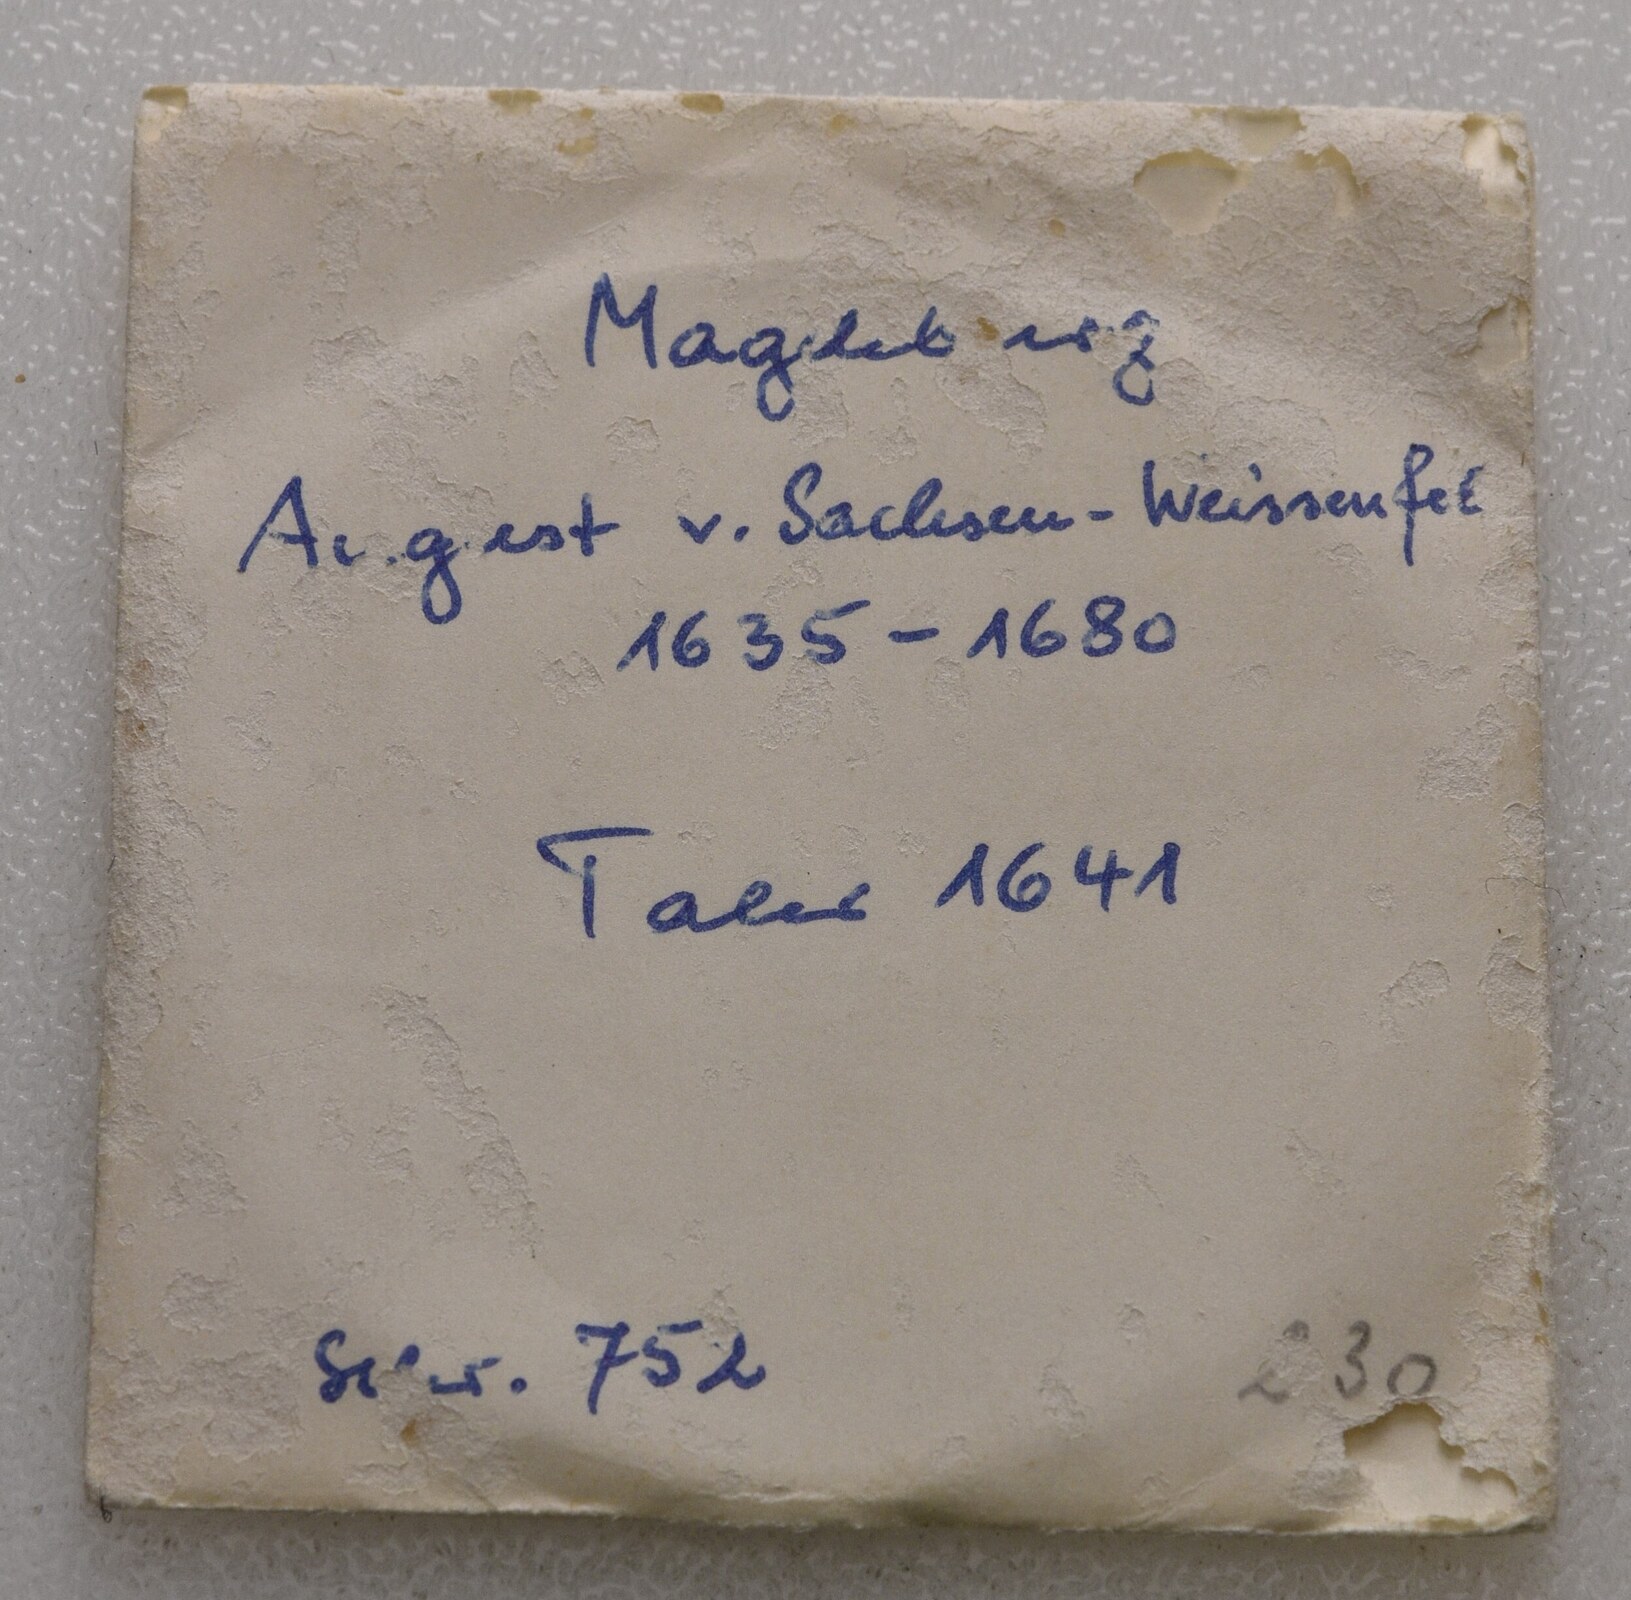 Magdeburg
August v. Sachsen-Weissenfel
1635 - 1680
Taler 1641
Schr. 752
230